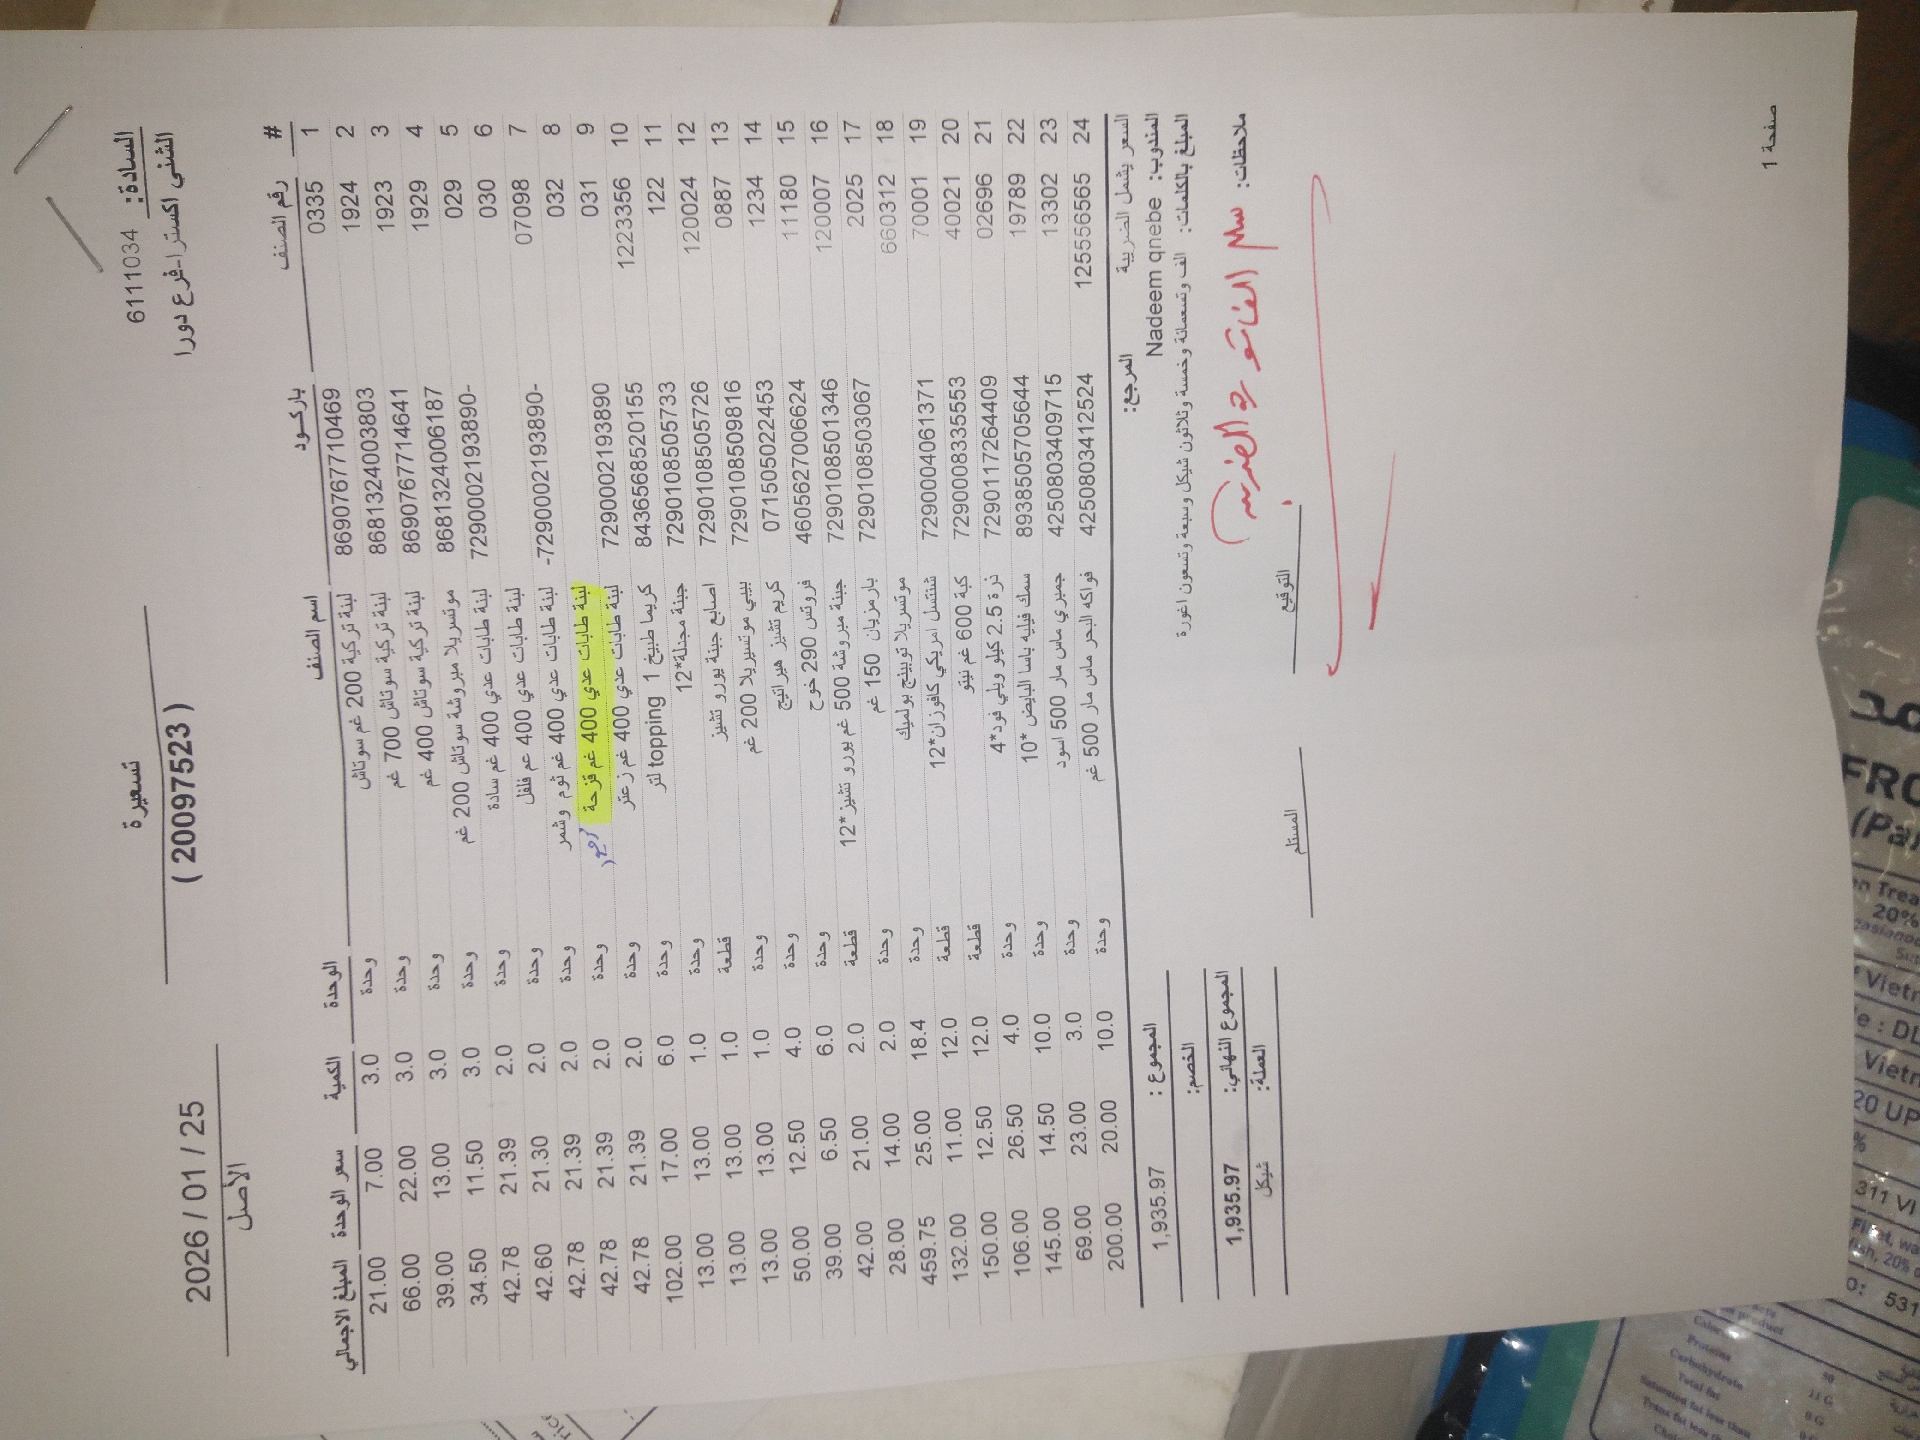 تسعيرة
( 20097523 )
2026 / 01 / 25
الأصل
السادة: 6111034
الشني اكسترا-فرع دورا
# رقم الصنف باركود اسم الصنف الوحدة الكمية سعر الوحدة المبلغ الاجمالي
1 0335 8690767710469 لبنة تركية 200 غم سوتاش وحدة 3.0 7.00 21.00
2 1924 8681324003803 لبنة تركية سوتاش 700 غم وحدة 3.0 22.00 66.00
3 1923 8690767714641 لبنة تركية سوتاش 400 غم وحدة 3.0 13.00 39.00
4 1929 8681324006187 موتسريلا مبروشة سوتاش 200 غم وحدة 3.0 11.50 34.50
5 029 7290002193890- لبنة طابات عدي 400 غم سادة وحدة 2.0 21.39 42.78
6 030 لبنة طابات عدي 400 غم فلفل وحدة 2.0 21.30 42.60
7 07098 -7290002193890- لبنة طابات عدي 400 غم ثوم وشمر وحدة 2.0 21.39 42.78
8 032 لبنة طابات عدي 400 غم قزحة وحدة 2.0 21.39 42.78
9 031 7290002193890 لبنة طابات عدي 400 غم زعتر وحدة 2.0 21.39 42.78
10 1223356 8436568520155 كريما طبيخ 1 topping لتر وحدة 6.0 17.00 102.00
11 122 7290108505733 جبنة مجدلة*12 وحدة 1.0 13.00 13.00
12 120024 7290108505726 اصابع جبنة يورو تشيز قطعة 1.0 13.00 13.00
13 0887 7290108509816 بيبي موتسيريلا 200 غم وحدة 1.0 13.00 13.00
14 1234 071505022453 كريم تشيز هيراتيج وحدة 4.0 12.50 50.00
15 11180 4605627006624 فروتس 290 خوخ وحدة 6.0 6.50 39.00
16 120007 7290108501346 جبنة مبروشة 500 غم يورو تشيز*12 قطعة 2.0 21.00 42.00
17 2025 7290108503067 بارمزيان 150 غم وحدة 2.0 14.00 28.00
18 660312 موتسريلا توبينج بولميك وحدة 18.4 25.00 459.75
19 70001 7290004061371 شنتسل امريكي كافوزان*12 قطعة 12.0 11.00 132.00
20 40021 7290008335553 كبة 600 غم نيتو قطعة 12.0 12.50 150.00
21 02696 7290117264409 ذرة 2.5 كيلو ويلي فود*4 وحدة 4.0 26.50 106.00
22 19789 8938505705644 سمك فيليه باسا البايض *10 وحدة 10.0 14.50 145.00
23 13302 4250803409715 جمبري ماس مار 500 اسود وحدة 3.0 23.00 69.00
24 125556565 4250803412524 فواكه البحر ماس مار 500 غم وحدة 10.0 20.00 200.00
السعر يشمل الضريبة المرجع:
المندوب: Nadeem qnebe
المبلغ بالكلمات: الف وتسعمائة وخمسة وثلاثون شيكل وسبعة وتسعون اغورة
المجموع : 1,935.97
الخصم:
المجموع النهائي: 1,935.97
العملة: شيكل
ملاحظات:
التوقيع
المستلم
صفحة 1
FRO
(Par
20%
Vietn
e : DL
Vietn
20 UP
%
311 VI
O: 531
Proteins
Carbohydrate
Total fat
Saturated fat less than
50
11 G
0 G